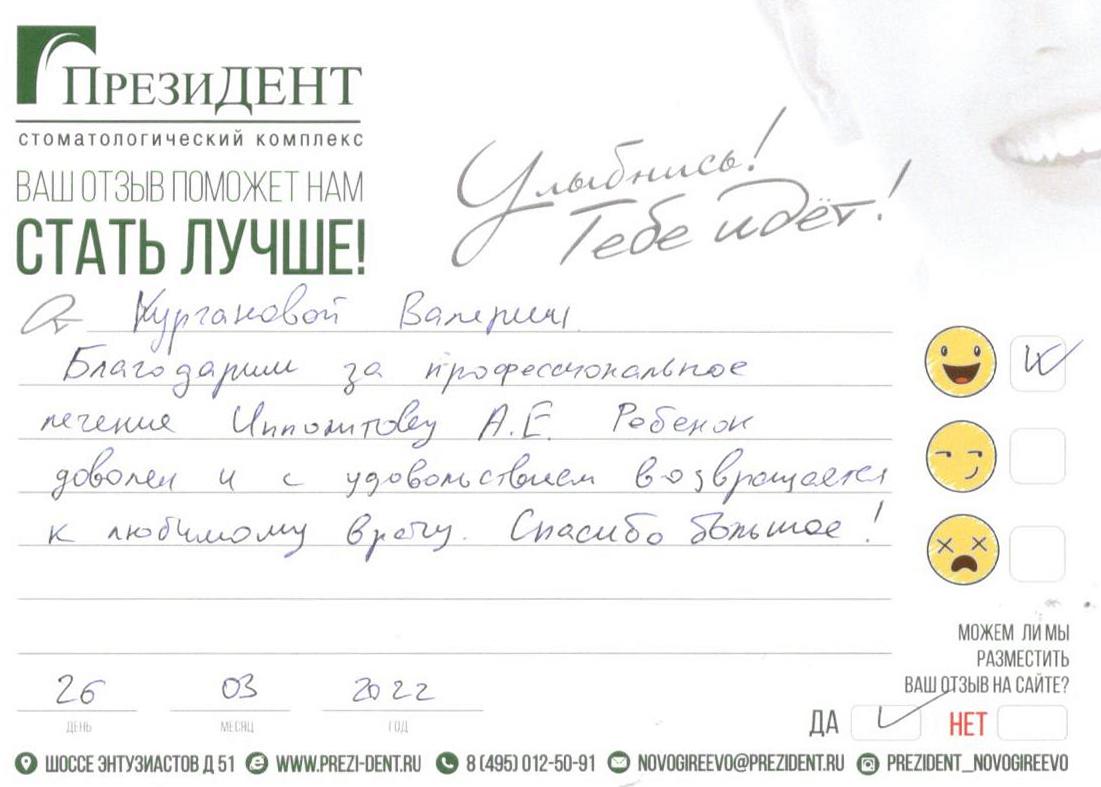 ПРЕЗИДЕНТ
СТОМАТОЛОГИЧЕСКИЙ КОМПЛЕКС
ВАШ ОТЗЫВ ПОМОЖЕТ НАМ
СТАТЬ ЛУЧШЕ!
Улыбнись!
Тебе идёт!
От Кургановой Валерии
Благодарим за профессиональное
лечение Ипполитову А.Е. Ребенок
доволен и с удовольствием возвращается
к любимому врачу. Спасибо большое!
МОЖЕМ ЛИ МЫ
РАЗМЕСТИТЬ
ВАШ ОТЗЫВ НА САЙТЕ?
26 03 2022
ДЕНЬ МЕСЯЦ ГОД
ДА НЕТ
ШОССЕ ЭНТУЗИАСТОВ Д 51 WWW.PREZI-DENT.RU 8 (495) 012-50-91 NOVOGIREEVO@PREZIDENT.RU PREZIDENT_NOVOGIREEVO